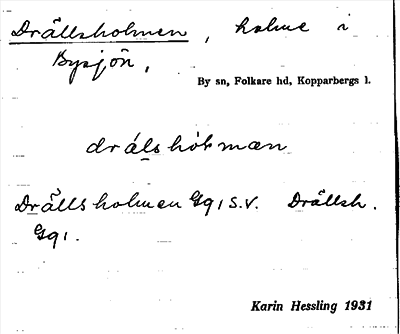 Drällsholmen, holme i
Bysjön,
By sn, Folkare hd, Kopparbergs l.
drálshòlmæn
Drälls holmen Gq 1 S.V. Drällsh.
Gq 1.
Karin Hessling 1931